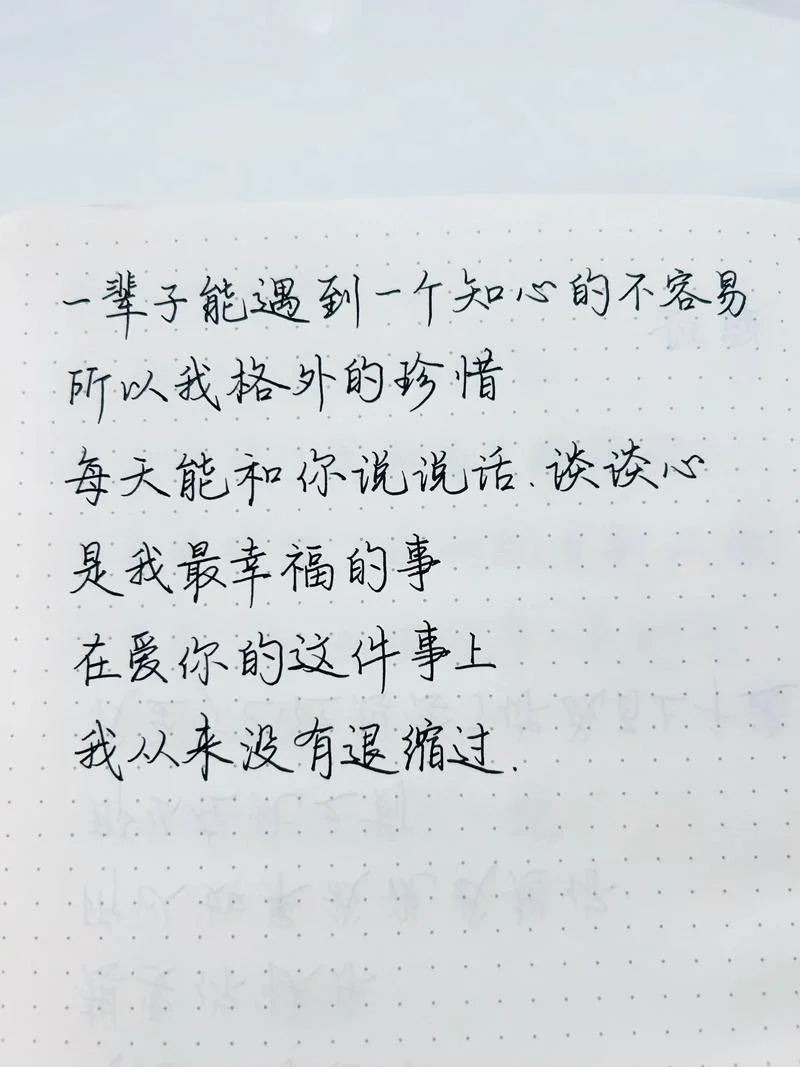 一辈子能遇到一个知心的不容易
所以我格外的珍惜
每天能和你说说话.谈谈心
是我最幸福的事
在爱你的这件事上
我从来没有退缩过.